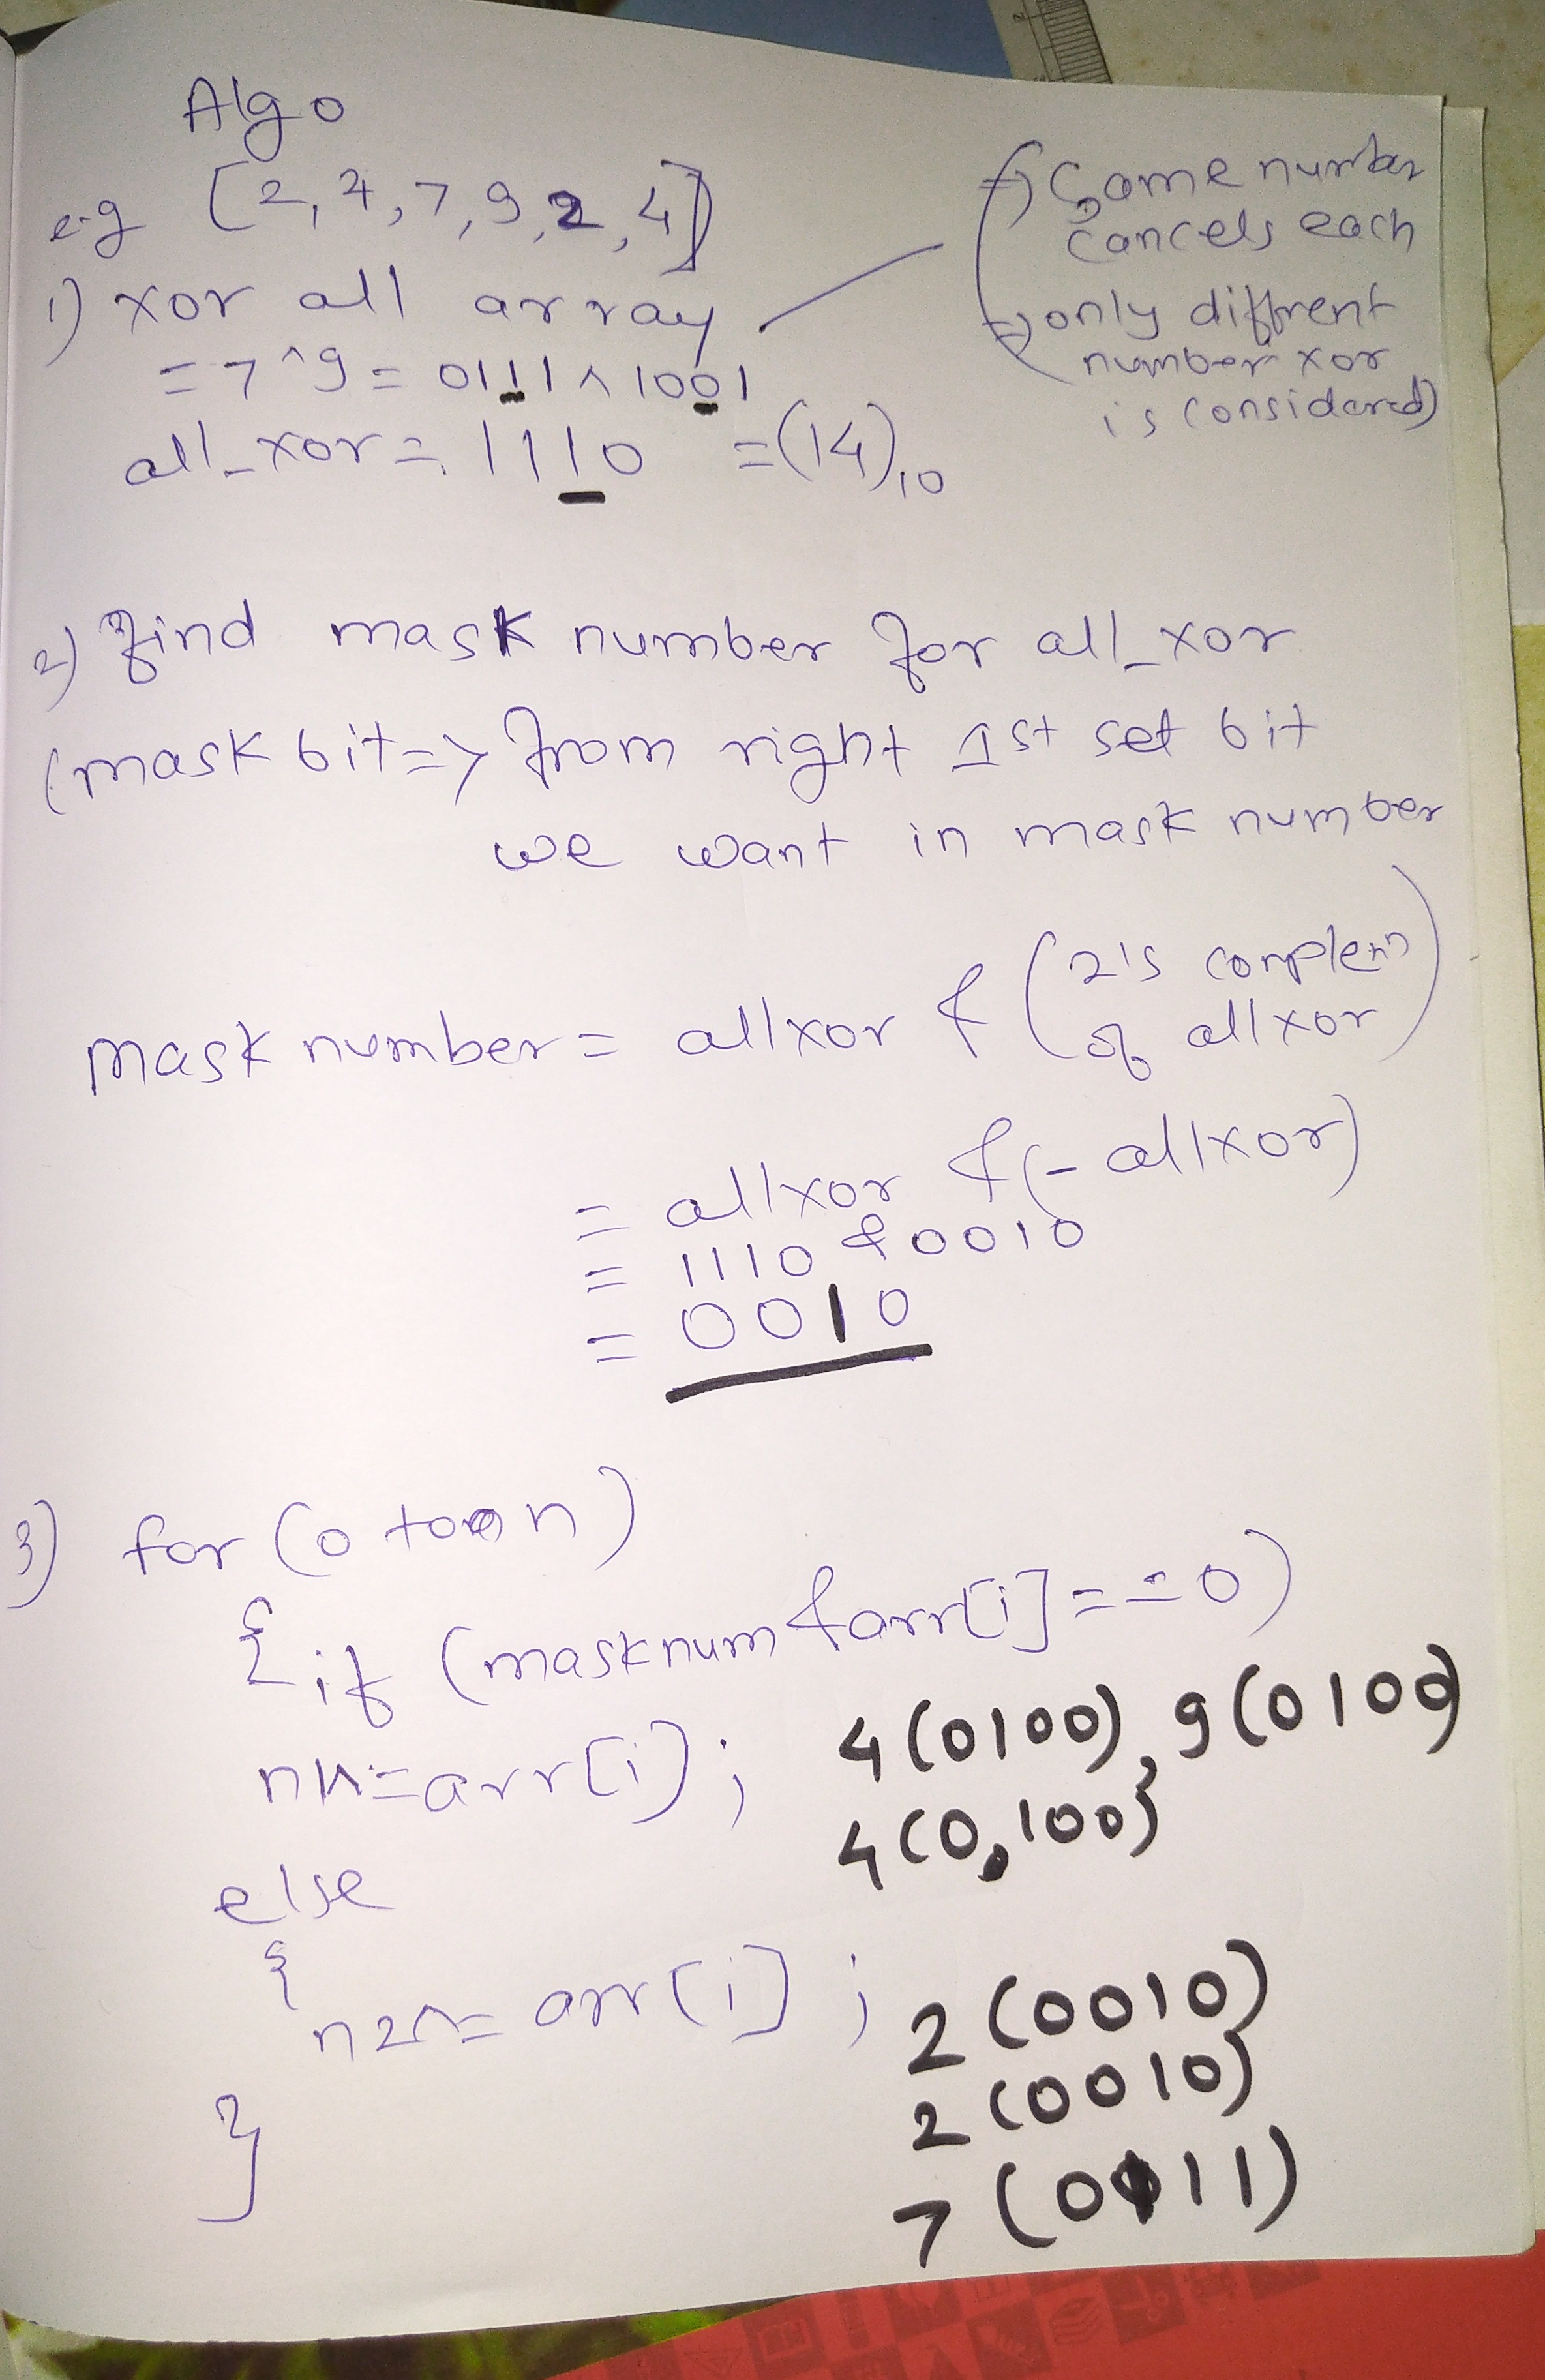 Algo
e.g [2, 4, 7, 9, 2, 4]
1) xor all array
= 7 ^ 9 = 0111 ^ 1001
all_xor = 1110 = (14)10
(=> Same number
cancels each
=> only diffrent
number xor
is considered)
2) find mask number for all_xor
(mask bit => from right 1st set bit
we want in mask number
mask number = allxor & (2's complem
of allxor)
= allxor & (- allxor)
= 1110 & 0010
= 0010
3) for (0 to n)
{ if (masknum & arr[i] == 0)
n1^=arr[i]; 4(0100), 9(0100)
4(0,100)
else
{
n2^= arr[i] ; 2(0010)
2(0010)
} 7(0111)